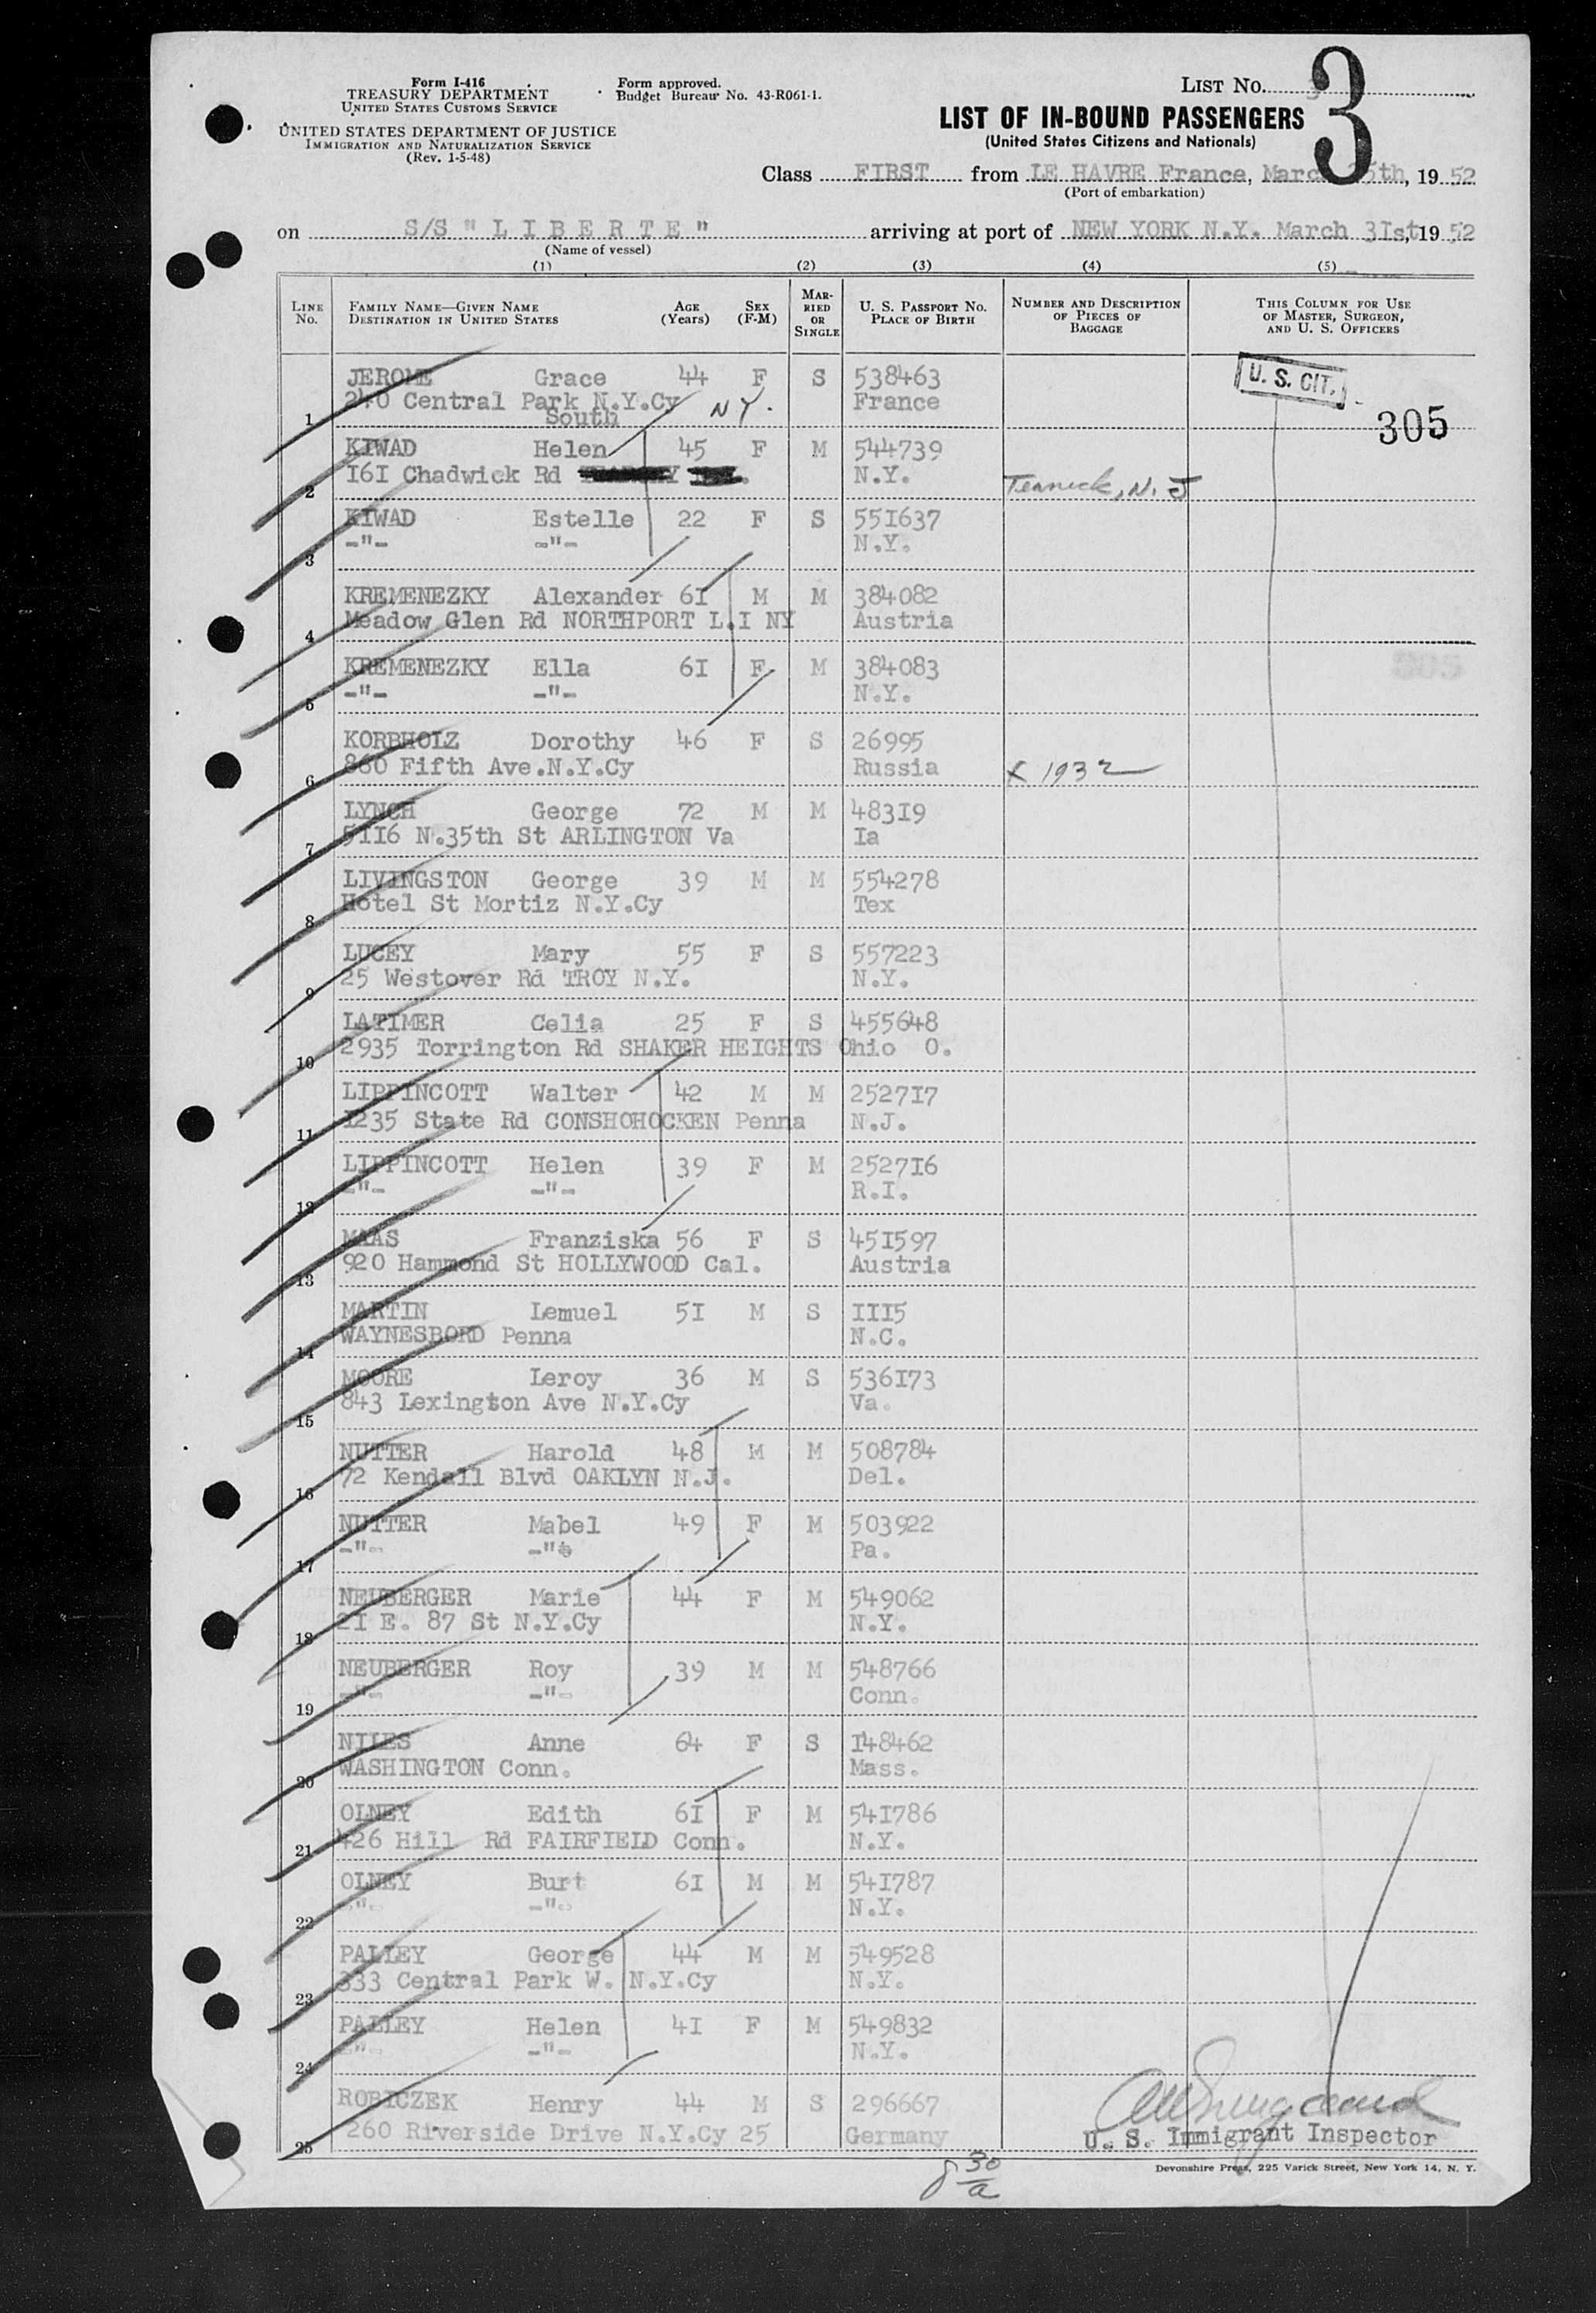 Form I-416
TREASURY DEPARTMENT
UNITED STATES CUSTOMS SERVICE
UNITED STATES DEPARTMENT OF JUSTICE
IMMIGRATION AND NATURALIZATION SERVICE
(Rev. 1-5-48)
Form approved.
Budget Bureau No. 43-R061-1.
LIST NO. 3
LIST OF IN-BOUND PASSENGERS
(United States Citizens and Nationals)
Class FIRST from LE HAVRE France, March 25th, 19 52
(Port of embarkation)
on S/S " L I B E R T E " arriving at port of NEW YORK N.Y. March 3Ist, 19 52
(Name of vessel)
(1) (2) (3) (4) (5)
LINE NO. FAMILY NAME—GIVEN NAME DESTINATION IN UNITED STATES AGE (Years) SEX (F-M) MARRIED OR SINGLE U. S. PASSPORT NO. PLACE OF BIRTH NUMBER AND DESCRIPTION OF PIECES OF BAGGAGE THIS COLUMN FOR USE OF MASTER, SURGEON, AND U. S. OFFICERS
JEROME Grace 44 F S 538463 U. S. CIT.
1 240 Central Park N.Y.Cy N Y. France 305
South
KIWAD Helen 45 F M 544739
2 I6I Chadwick Rd N.Y. Teaneck, N. J
KIWAD Estelle 22 F S 55I637
3 -"- -"- N.Y.
KREMENEZKY Alexander 6I M M 384082
4 Meadow Glen Rd NORTHPORT L.I NY Austria
KREMENEZKY Ella 6I F M 384083
5 -"- -"- N.Y.
KORBHOLZ Dorothy 46 F S 26995
6 860 Fifth Ave.N.Y.Cy Russia x 1932
LYNCH George 72 M M 483I9
7 5II6 N.35th St ARLINGTON Va Ia
LIVINGSTON George 39 M M 554278
8 Hotel St Mortiz N.Y.Cy Tex
LUCEY Mary 55 F S 557223
9 25 Westover Rd TROY N.Y. N.Y.
LATIMER Celia 25 F S 455648
10 2935 Torrington Rd SHAKER HEIGHTS Ohio O.
LIPPINCOTT Walter 42 M M 2527I7
11 I235 State Rd CONSHOHOCKEN Penna N.J.
LIPPINCOTT Helen 39 F M 2527I6
12 -"- -"- R.I.
MAAS Franziska 56 F S 45I597
13 920 Hammond St HOLLYWOOD Cal. Austria
MARTIN Lemuel 5I M S III5
14 WAYNESBORD Penna N.C.
MOORE Leroy 36 M S 536I73
15 843 Lexington Ave N.Y.Cy Va.
NUTTER Harold 48 M M 508784
16 72 Kendall Blvd OAKLYN N.J. Del.
NUTTER Mabel 49 F M 503922
17 -"- -"- Pa.
NEUBERGER Marie 44 F M 549062
18 2I E. 87 St N.Y.Cy N.Y.
NEUBERGER Roy 39 M M 548766
19 -"- -"- Conn.
NILES Anne 64 F S I48462
20 WASHINGTON Conn. Mass.
OLNEY Edith 6I F M 54I786
21 426 Hill Rd FAIRFIELD Conn. N.Y.
OLNEY Burt 6I M M 54I787
22 -"- -"- N.Y.
PALLEY George 44 M M 549528
23 333 Central Park W. N.Y.Cy N.Y.
PALLEY Helen 4I F M 549832
24 -"- -"- N.Y.
ROBICZEK Henry 44 M S 296667
25 260 Riverside Drive N.Y.Cy 25 Germany
U. S. Immigrant Inspector
8 30/a
Devonshire Press, 225 Varick Street, New York 14, N. Y.